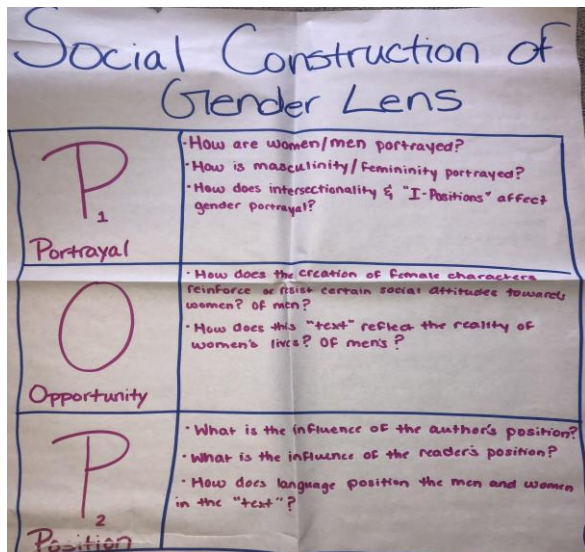 Social Construction of
Gender Lens
P1
Portrayal
· How are women/men portrayed?
· How is masculinity/femininity portrayed?
· How does intersectionality & "I-Positions" affect
gender portrayal?
O
Opportunity
· How does the creation of female characters
reinforce or resist certain social attitudes towards
women? Of men?
· How does this "text" reflect the reality of
women's lives? Of men's?
P2
Position
· What is the influence of the author's position?
· What is the influence of the reader's position?
· How does language position the men and women
in the "text"?